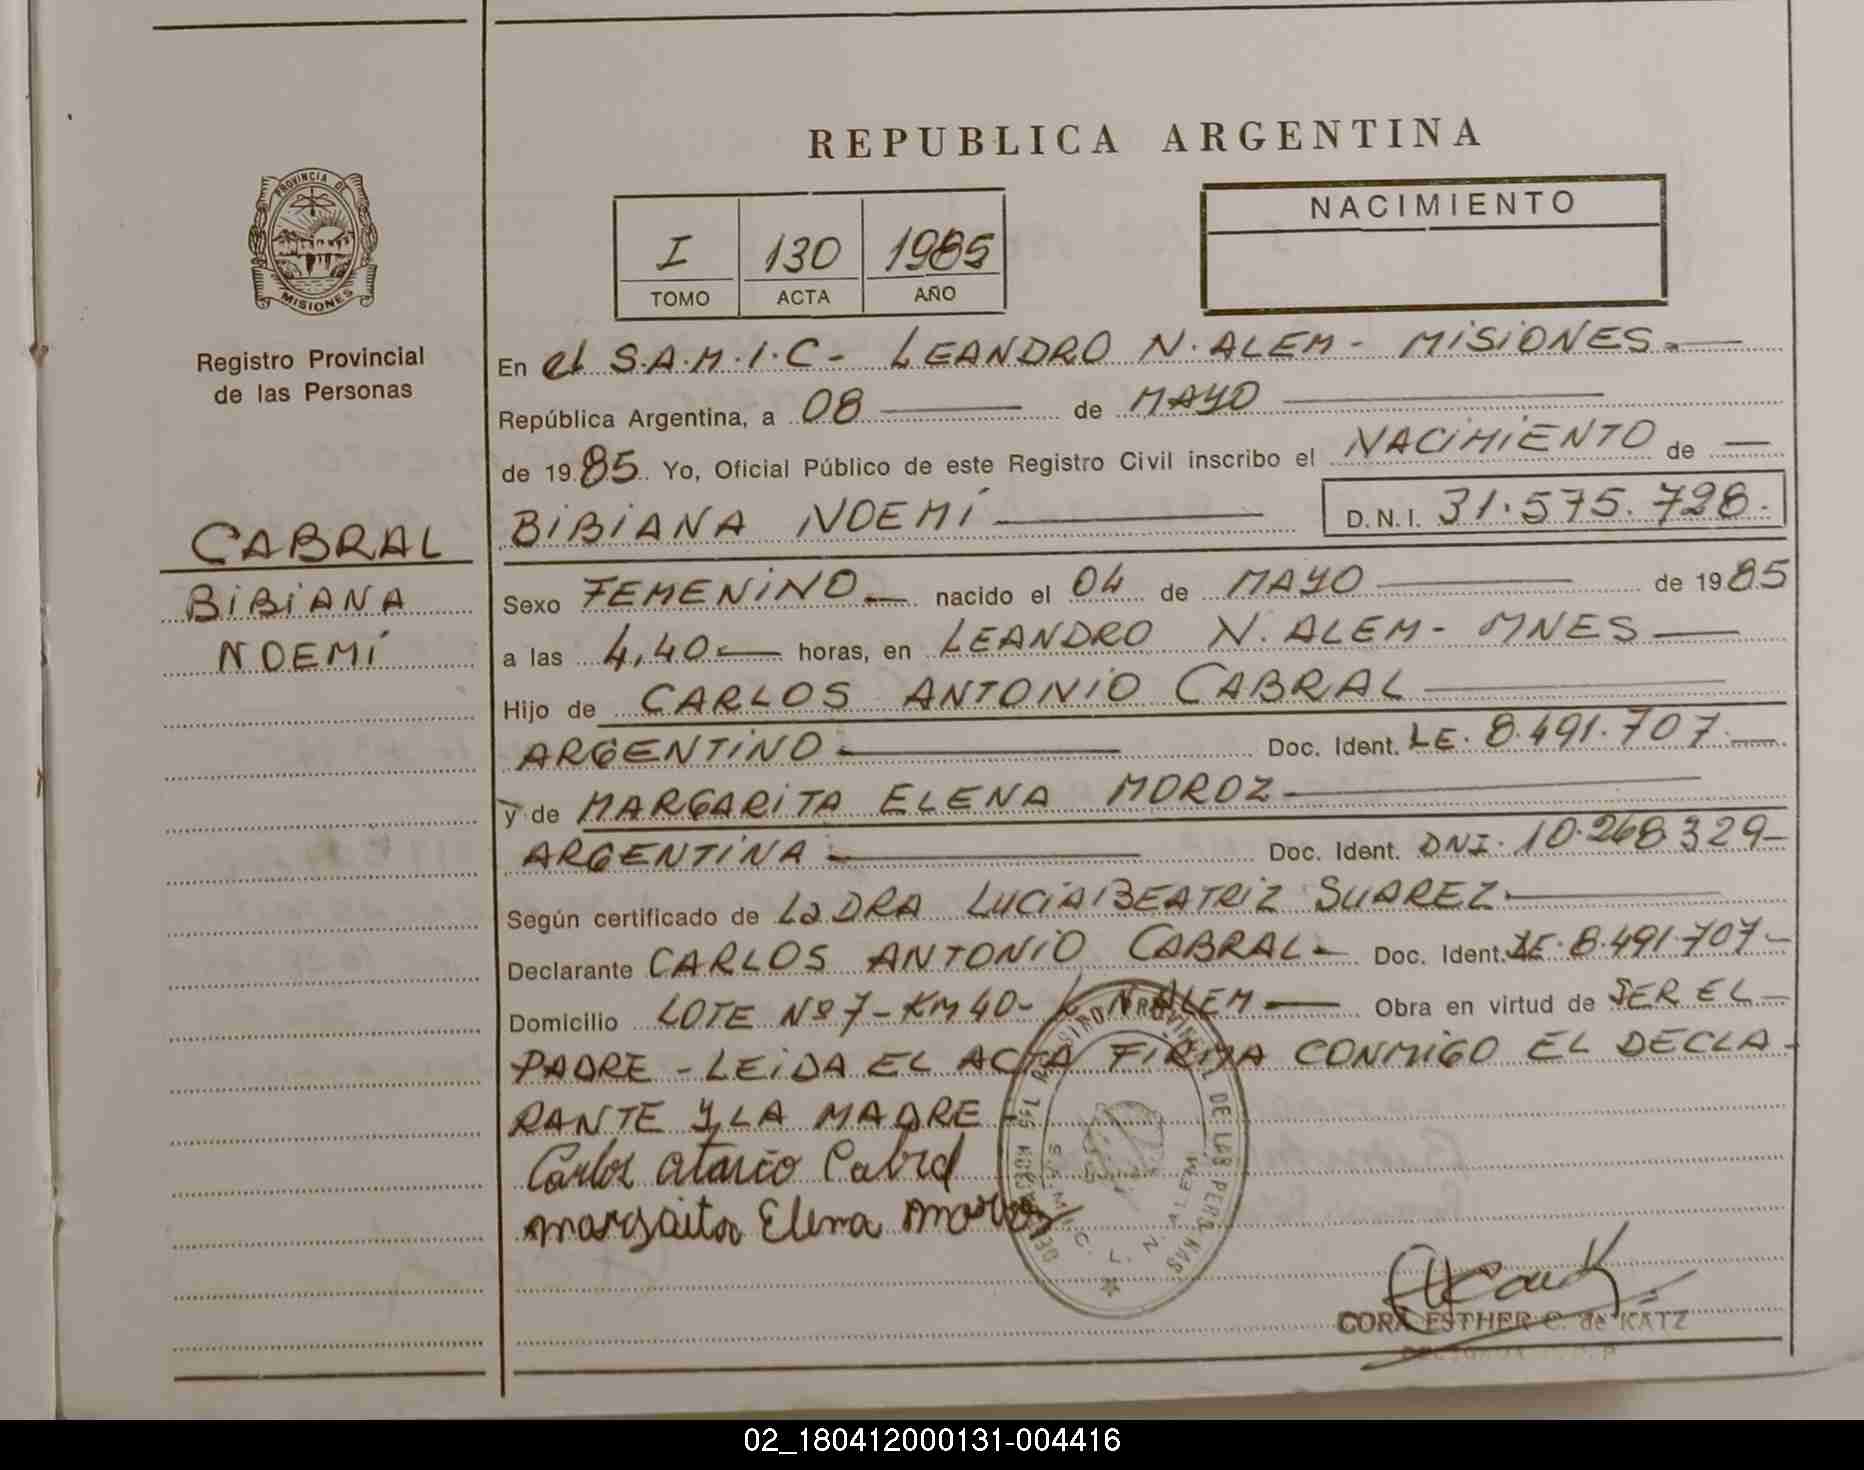 REPUBLICA ARGENTINA
PROVINCIA DE
MISIONES
Registro Provincial
de las Personas
CABRAL
BIBIANA
NOEMÍ
I 130 1985
TOMO ACTA AÑO
NACIMIENTO
En el S.A.M.I.C- LEANDRO N. ALEM - MISIONES.-
República Argentina, a 08 de MAYO
de 1985 Yo, Oficial Público de este Registro Civil inscribo el NACIMIENTO de
BIBIANA NOEMÍ D.N.I. 31.575.728.
Sexo FEMENINO nacido el 04 de MAYO de 1985
a las 4,40 horas, en LEANDRO N. ALEM - MNES
Hijo de CARLOS ANTONIO CABRAL
ARGENTINO Doc. Ident. LE. 8.491.707.
y de MARGARITA ELENA MOROZ
ARGENTINA Doc. Ident. DNI. 10.268.329-
Según certificado de La DRA LUCIA BEATRIZ SUAREZ
Declarante CARLOS ANTONIO CABRAL- Doc. Ident. LE. 8.491.707-
Domicilio LOTE Nº 7 - KM 40- L. N. ALEM Obra en virtud de SER EL
PADRE - LEIDA EL ACTA FIRMA CONMIGO EL DECLA-
RANTE Y LA MADRE -
Carlos Cabral
Margarita Elena Moroz
REGISTRO PROVINCIAL DE LAS PERSONAS
S.A.M.I.C. L. N. ALEM
CORA ESTHER C. de KATZ
02_180412000131-004416